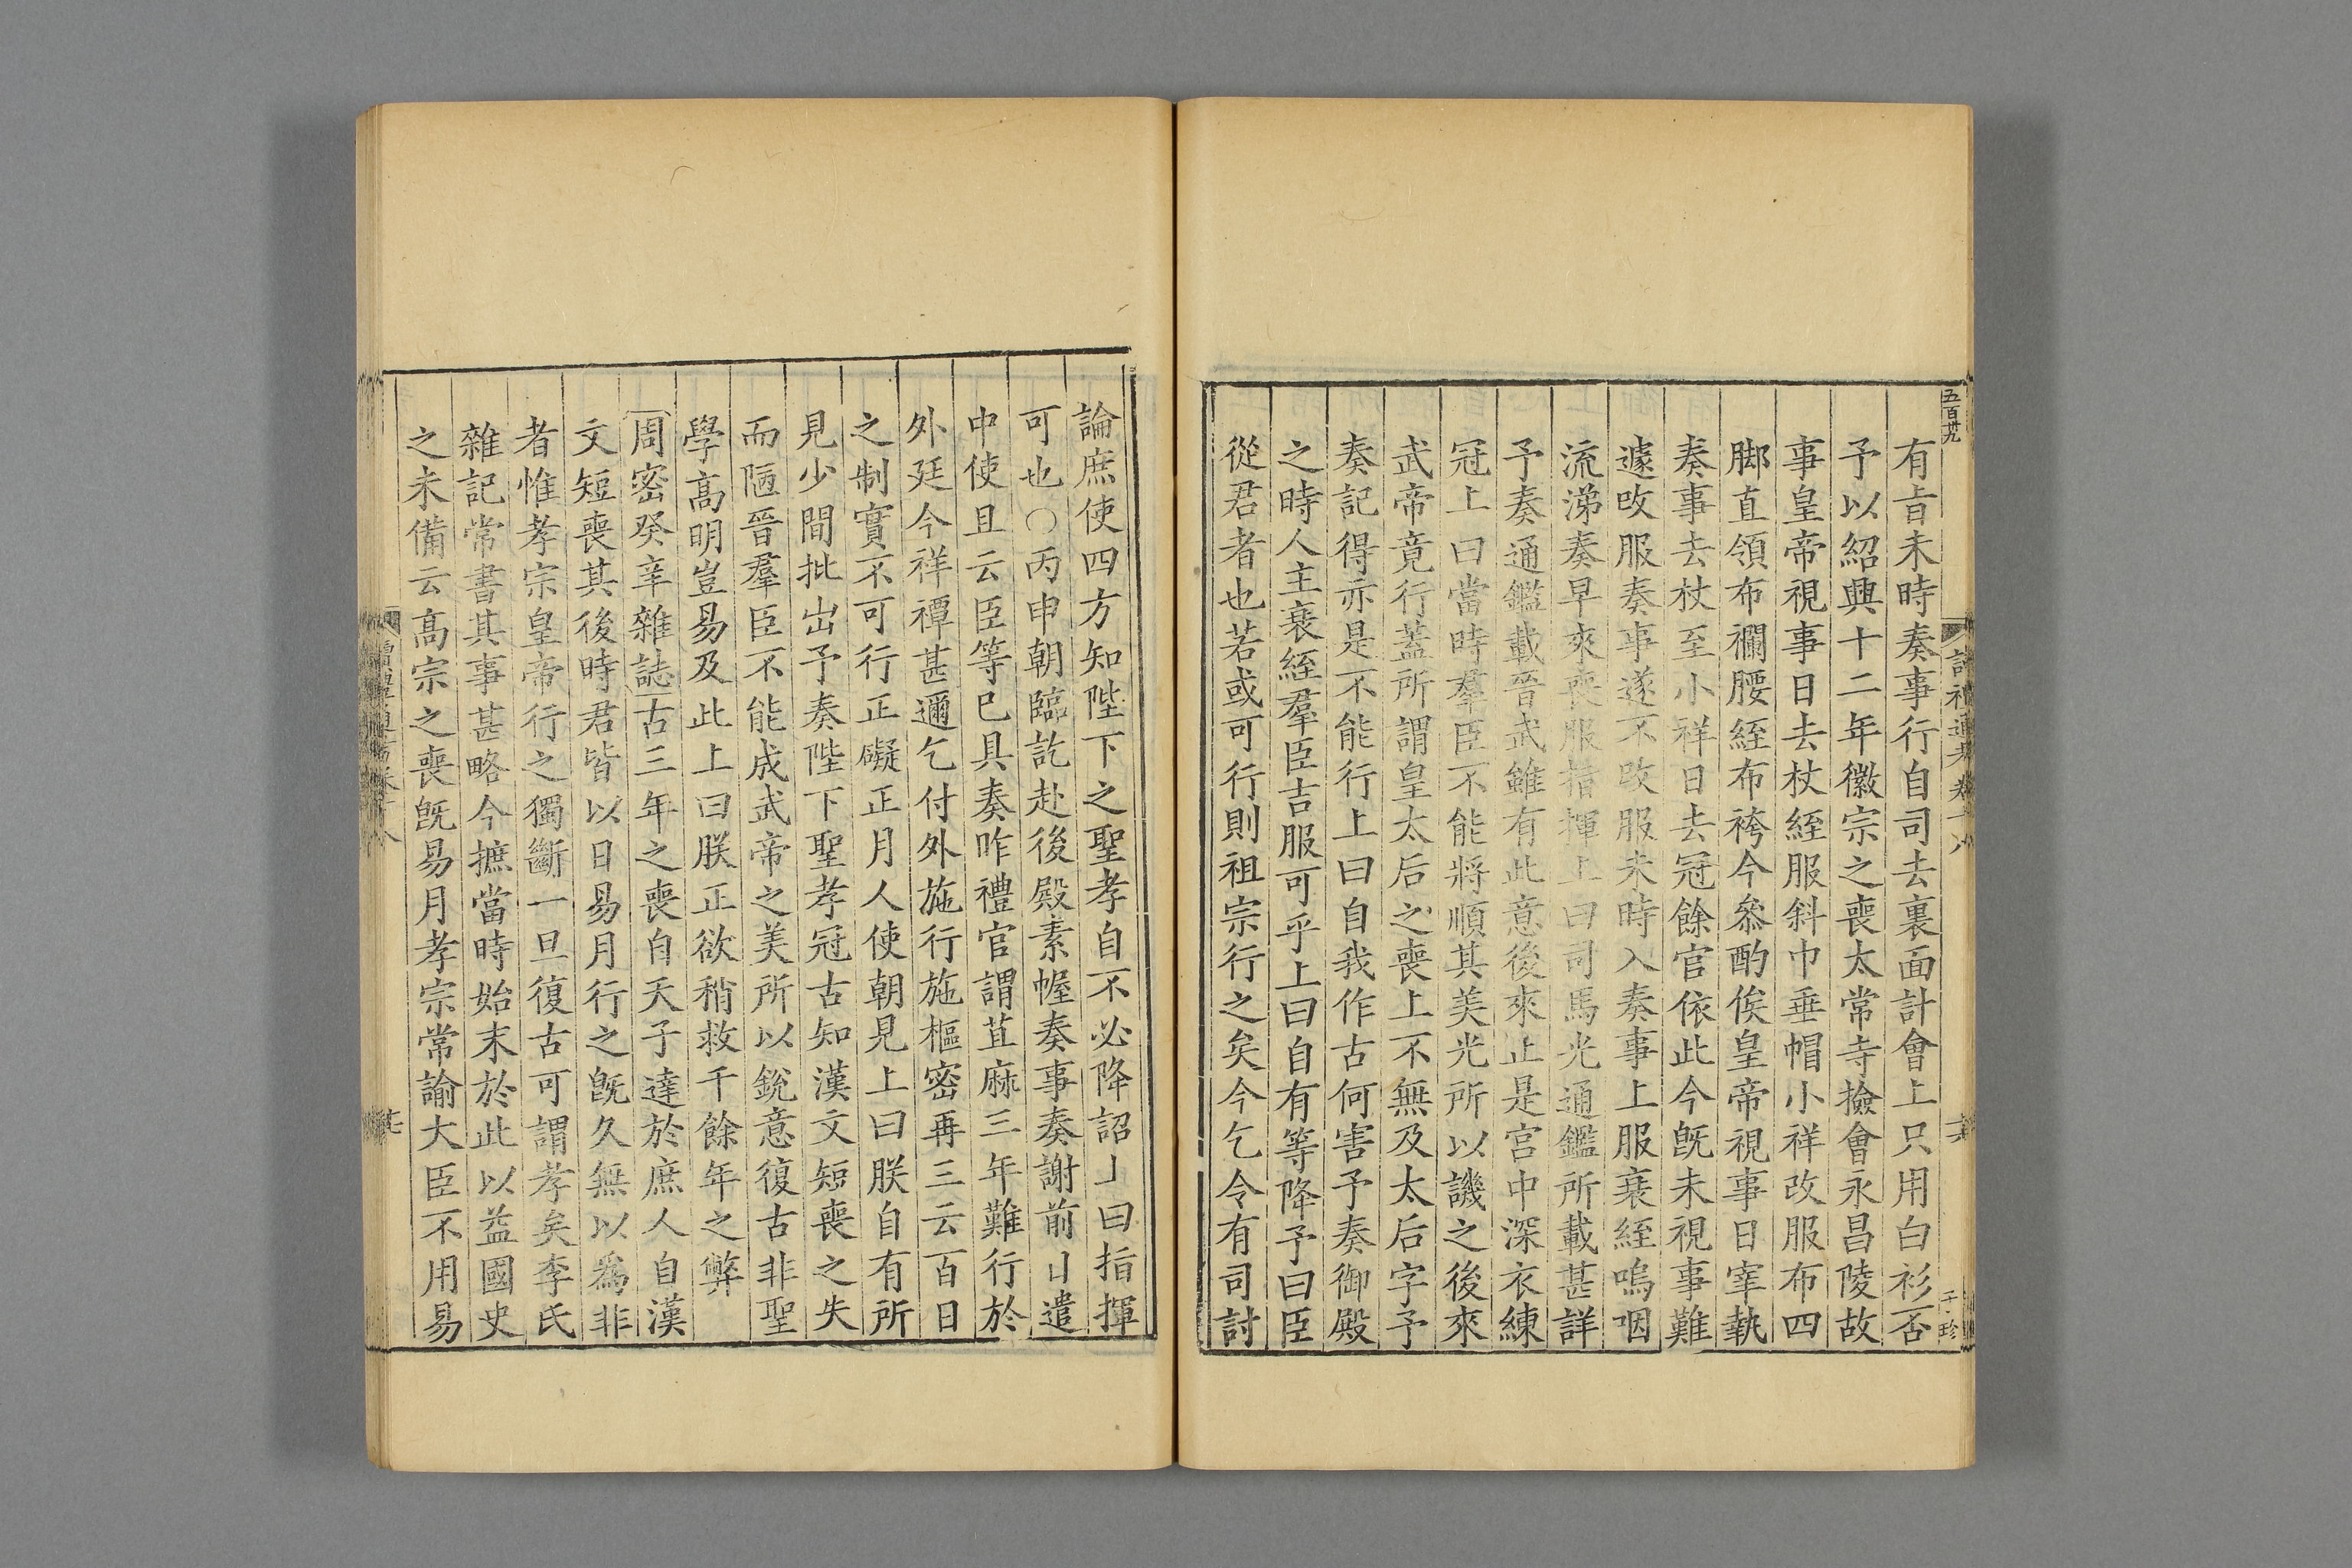 五百廿九
有旨未時奏事行自司去裏面計會上只用白衫否
予以紹興十二年徽宗之喪太常寺撿會永昌陵故
事皇帝視事日去杖絰服斜巾垂帽小祥改服布四
脚直領布襴腰絰布袴今叅酌俟皇帝視事日宰執
奏事去杖至小祥日去冠餘官依此今旣未視事難
遽改服奏事遂不改服未時入奏事上服衰絰嗚咽
流涕奏早來喪服指揮上曰司馬光通鑑所載甚詳
予奏通鑑載晉武雖有此意後來止是宫中深衣練
冠上曰當時羣臣不能將順其美光所以譏之後來
武帝竟行蓋所謂皇太后之喪上不無及太后字予
奏記得亦是不能行上曰自我作古何害予奏御殿
之時人主衰絰羣臣吉服可乎上曰自有等降予曰臣
從君者也若或可行則祖宗行之矣今乞令有司討
論庶使四方知陛下之聖孝自不必降詔上曰指揮
可也○丙申朝臨訖赴後殿素幄奏事奏謝前日遣
中使且云臣等已具奏昨禮官謂苴麻三年難行於
外廷今祥禫甚邇乞付外施行施樞密再三云百日
之制實不可行正礙正月人使朝見上曰朕自有所
見少間批出予奏陛下聖孝冠古知漢文短喪之失
而陋晉羣臣不能成武帝之美所以銳意復古非聖
學高明豈易及此上曰朕正欲稍救千餘年之弊
周密癸辛雜誌古三年之喪自天子達於庶人自漢
文短喪其後時君皆以日易月行之旣久無以爲非
者惟孝宗皇帝行之獨斷一旦復古可謂孝矣李氏
雜記常書其事甚略今摭當時始末於此以益國史
之未備云高宗之喪旣易月孝宗常諭大臣不用易